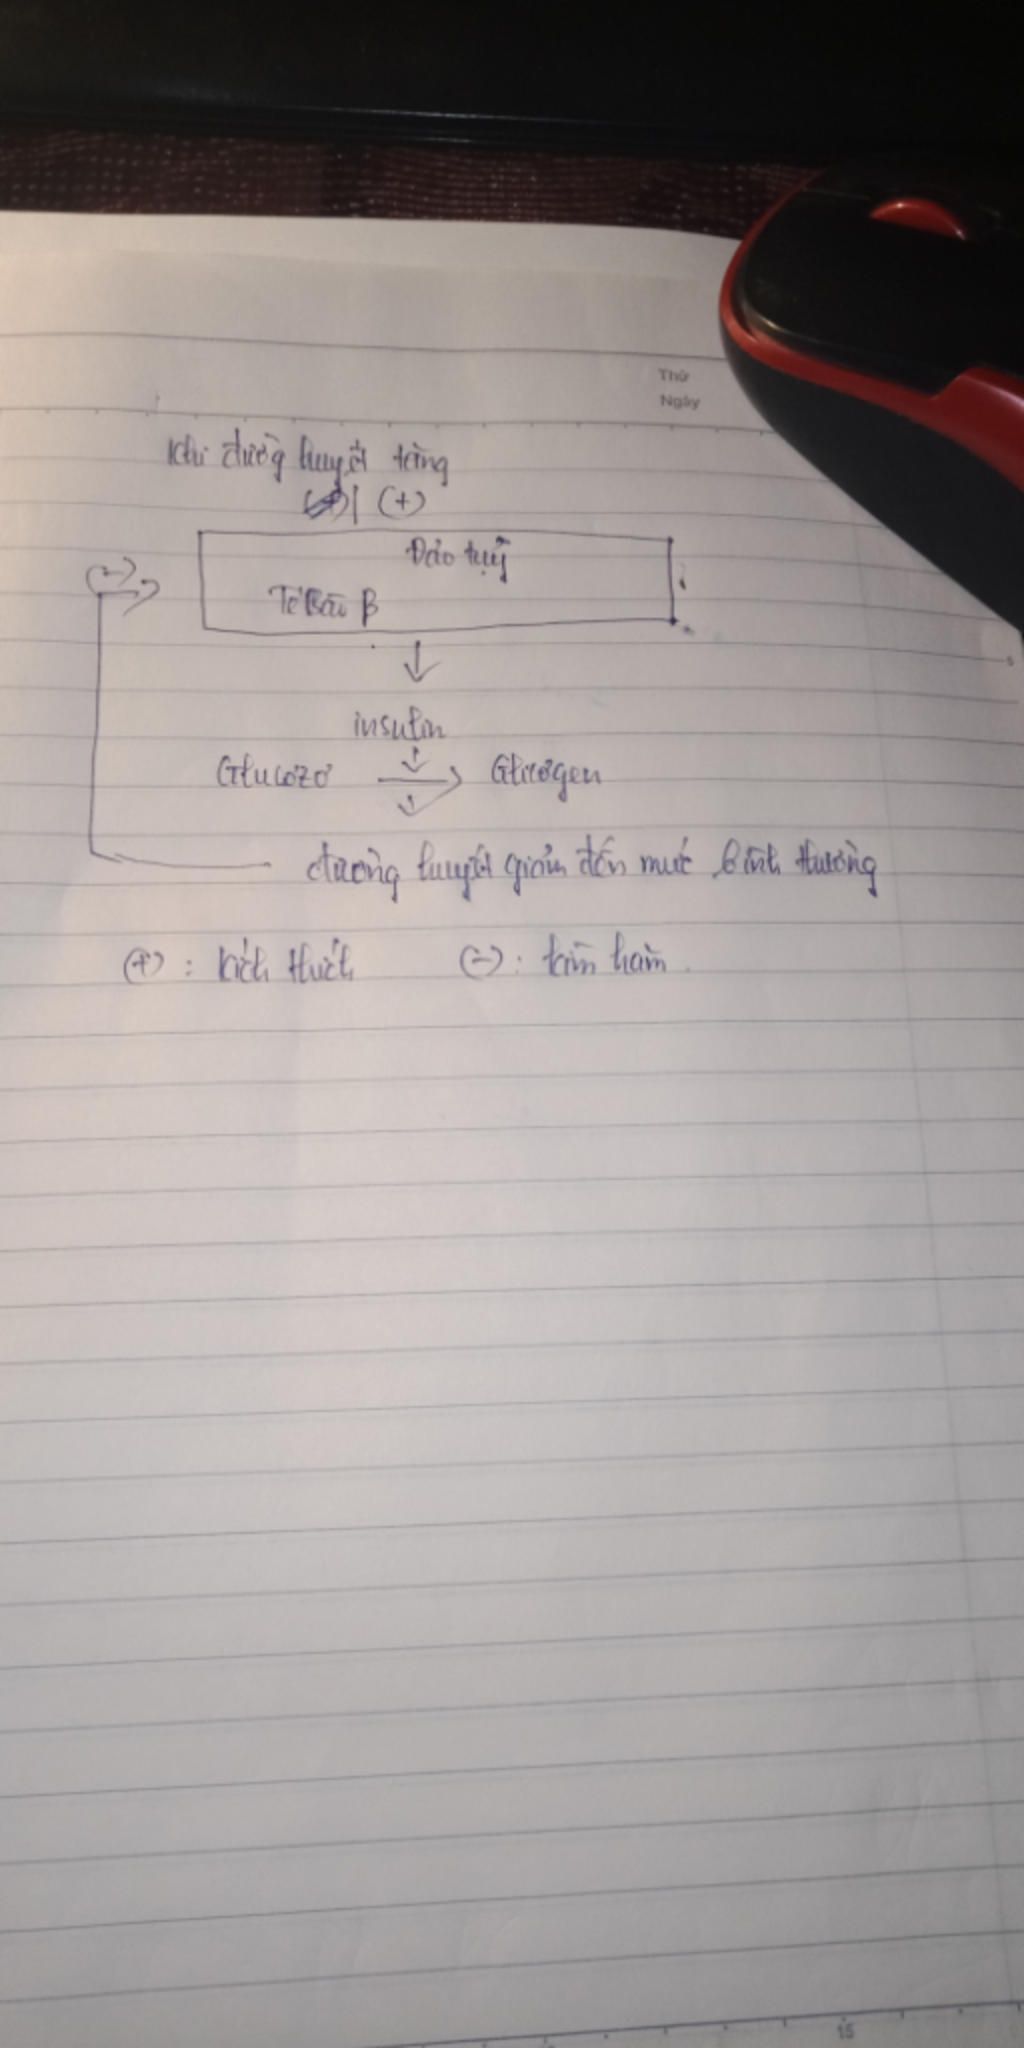 Thứ
Ngày
Khi đường huyết tăng
(+)
Đảo tụy
Tế Bào β
(-)
insulin
Glucozơ → Glicogen
đường huyết giảm đến mức bình thường
(+): kích thích (-): kìm hãm.
15